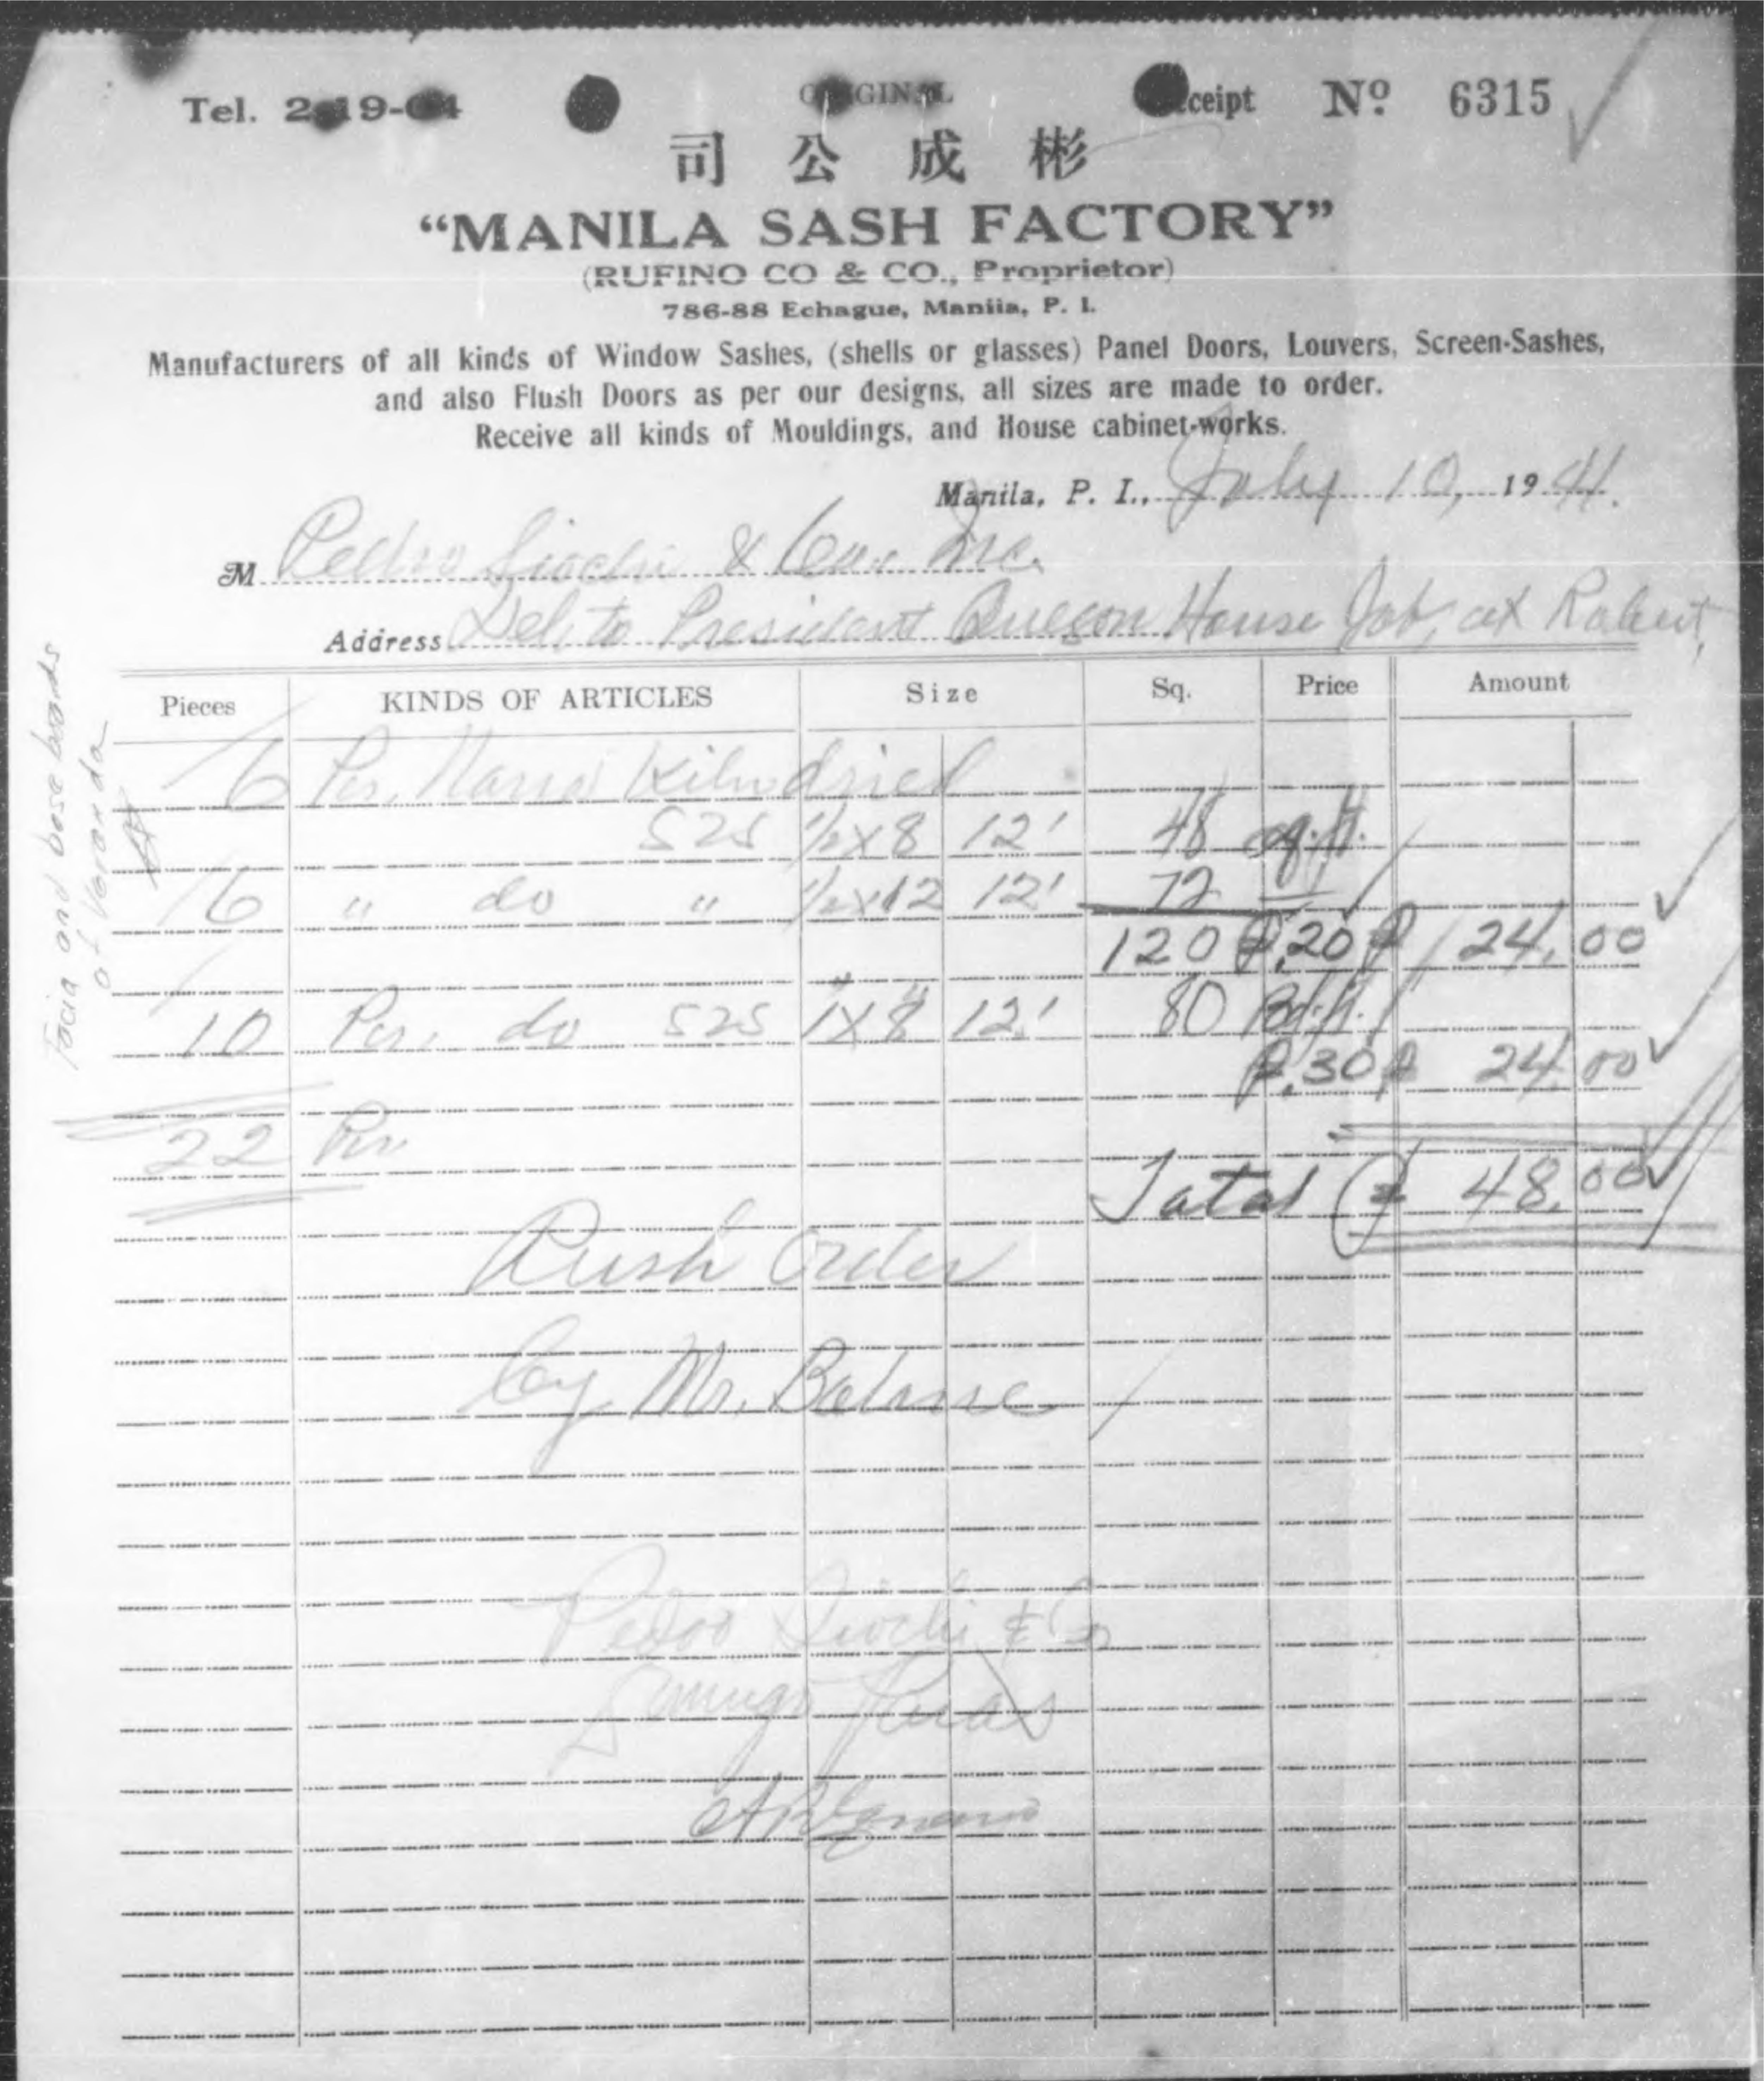 Tel. 2-19-04
ORIGINAL
Receipt Nº 6315
司公成彬
“MANILA SASH FACTORY”
(RUFINO CO & CO., Proprietor)
786-88 Echague, Manila, P. I.
Manufacturers of all kinds of Window Sashes, (shells or glasses) Panel Doors, Louvers, Screen-Sashes,
and also Flush Doors as per our designs, all sizes are made to order.
Receive all kinds of Mouldings, and House cabinet-works.
Manila, P. I., July 10, 1941.
M Pedro Siochi & Co., Inc.
Address Del. to President Quezon House Job, at Robert,
Facia and base boards
of Veranda
Pieces KINDS OF ARTICLES Size Sq. Price Amount
6 Pcs. Kilndried
S2S 1/2x8 12' 48 sq.ft.
6 " do " 1/2x12 12' 72
120 ₱.20 ₱ 24.00
10 Pcs. do S2S 1"x8" 12' 80 Bd.ft.
₱.30 ₱ 24.00
22 Pcs
Total ₱ 48.00
Rush Order
by Mr.
Pedro Siochi & Co